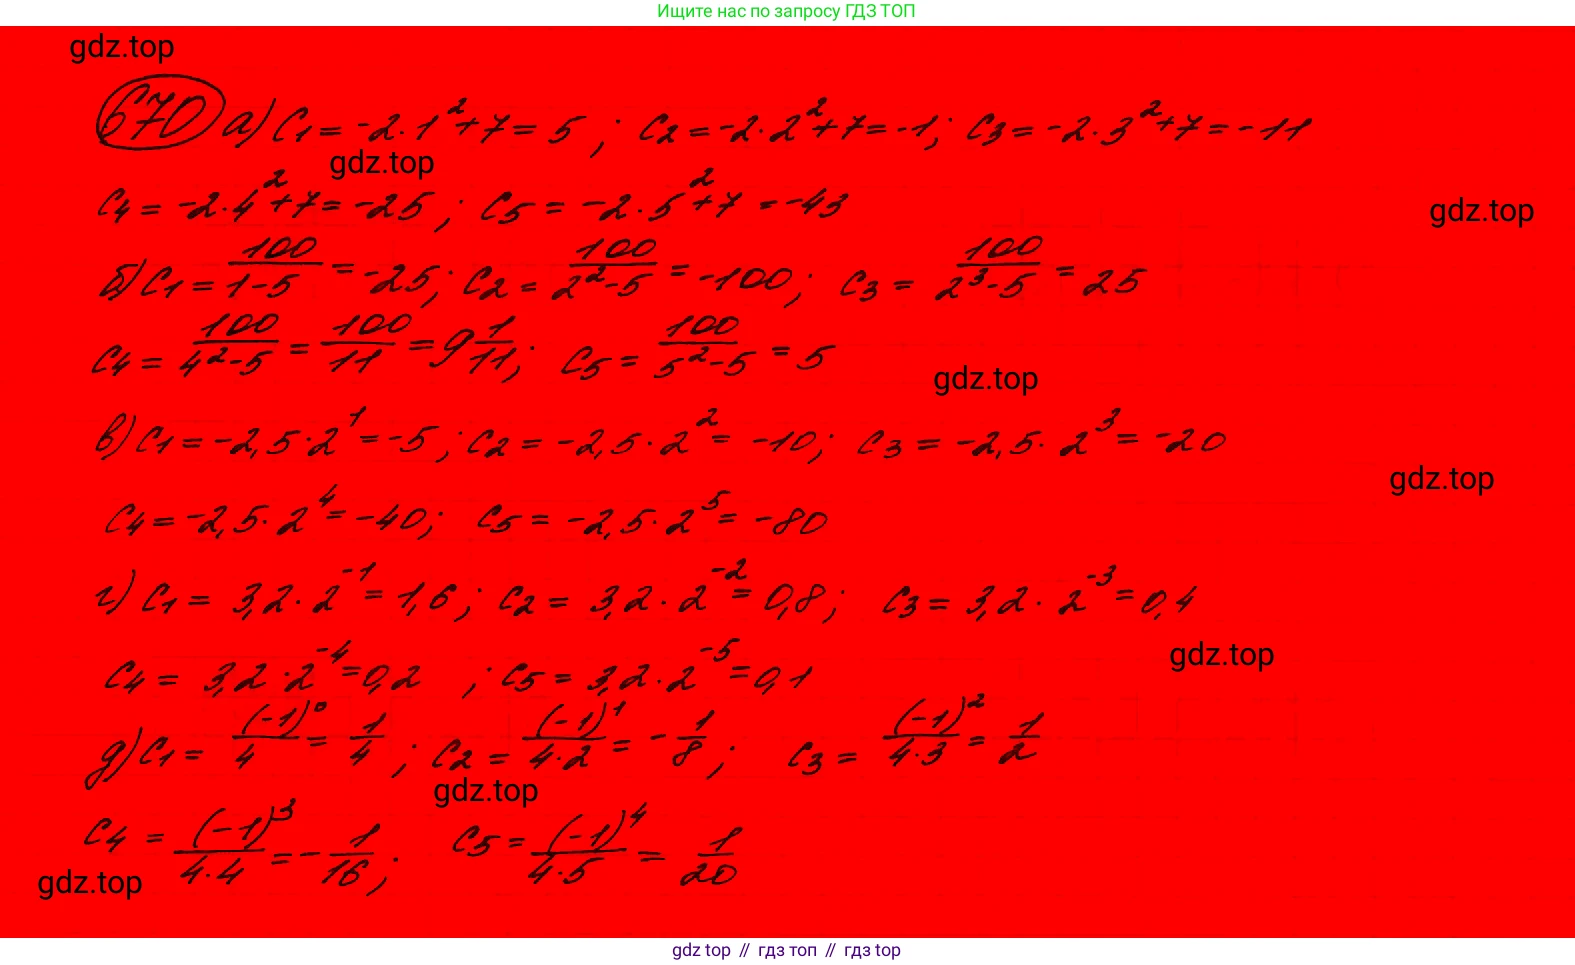 Ищите нас по запросу ГДЗ ТОП
gdz.top
670 а) C₁ = -2·1²+7 = 5 ; C₂ = -2·2²+7 = -1; C₃ = -2·3²+7 = -11
gdz.top
C₄ = -2·4²+7 = -25 ; C₅ = -2·5²+7 = -43
gdz.top
б) C₁ = 100/(1-5) = -25; C₂ = 100/(2²-5) = -100; C₃ = 100/(2³-5) = 25
C₄ = 100/(4²-5) = 100/11 = 9 1/11; C₅ = 100/(5²-5) = 5
gdz.top
в) C₁ = -2,5·2¹ = -5 ; C₂ = -2,5·2² = -10; C₃ = -2,5·2³ = -20
gdz.top
C₄ = -2,5·2⁴ = -40; C₅ = -2,5·2⁵ = -80
г) C₁ = 3,2·2⁻¹ = 1,6 ; C₂ = 3,2·2⁻² = 0,8; C₃ = 3,2·2⁻³ = 0,4
gdz.top
C₄ = 3,2·2⁻⁴ = 0,2 ; C₅ = 3,2·2⁻⁵ = 0,1
д) C₁ = (-1)⁰/4 = 1/4 ; C₂ = (-1)¹/(4·2) = -1/8 ; C₃ = (-1)²/(4·3) = 1/2
gdz.top
C₄ = (-1)³/(4·4) = -1/16 ; C₅ = (-1)⁴/(4·5) = 1/20
gdz.top
gdz top // гдз топ // гдз top